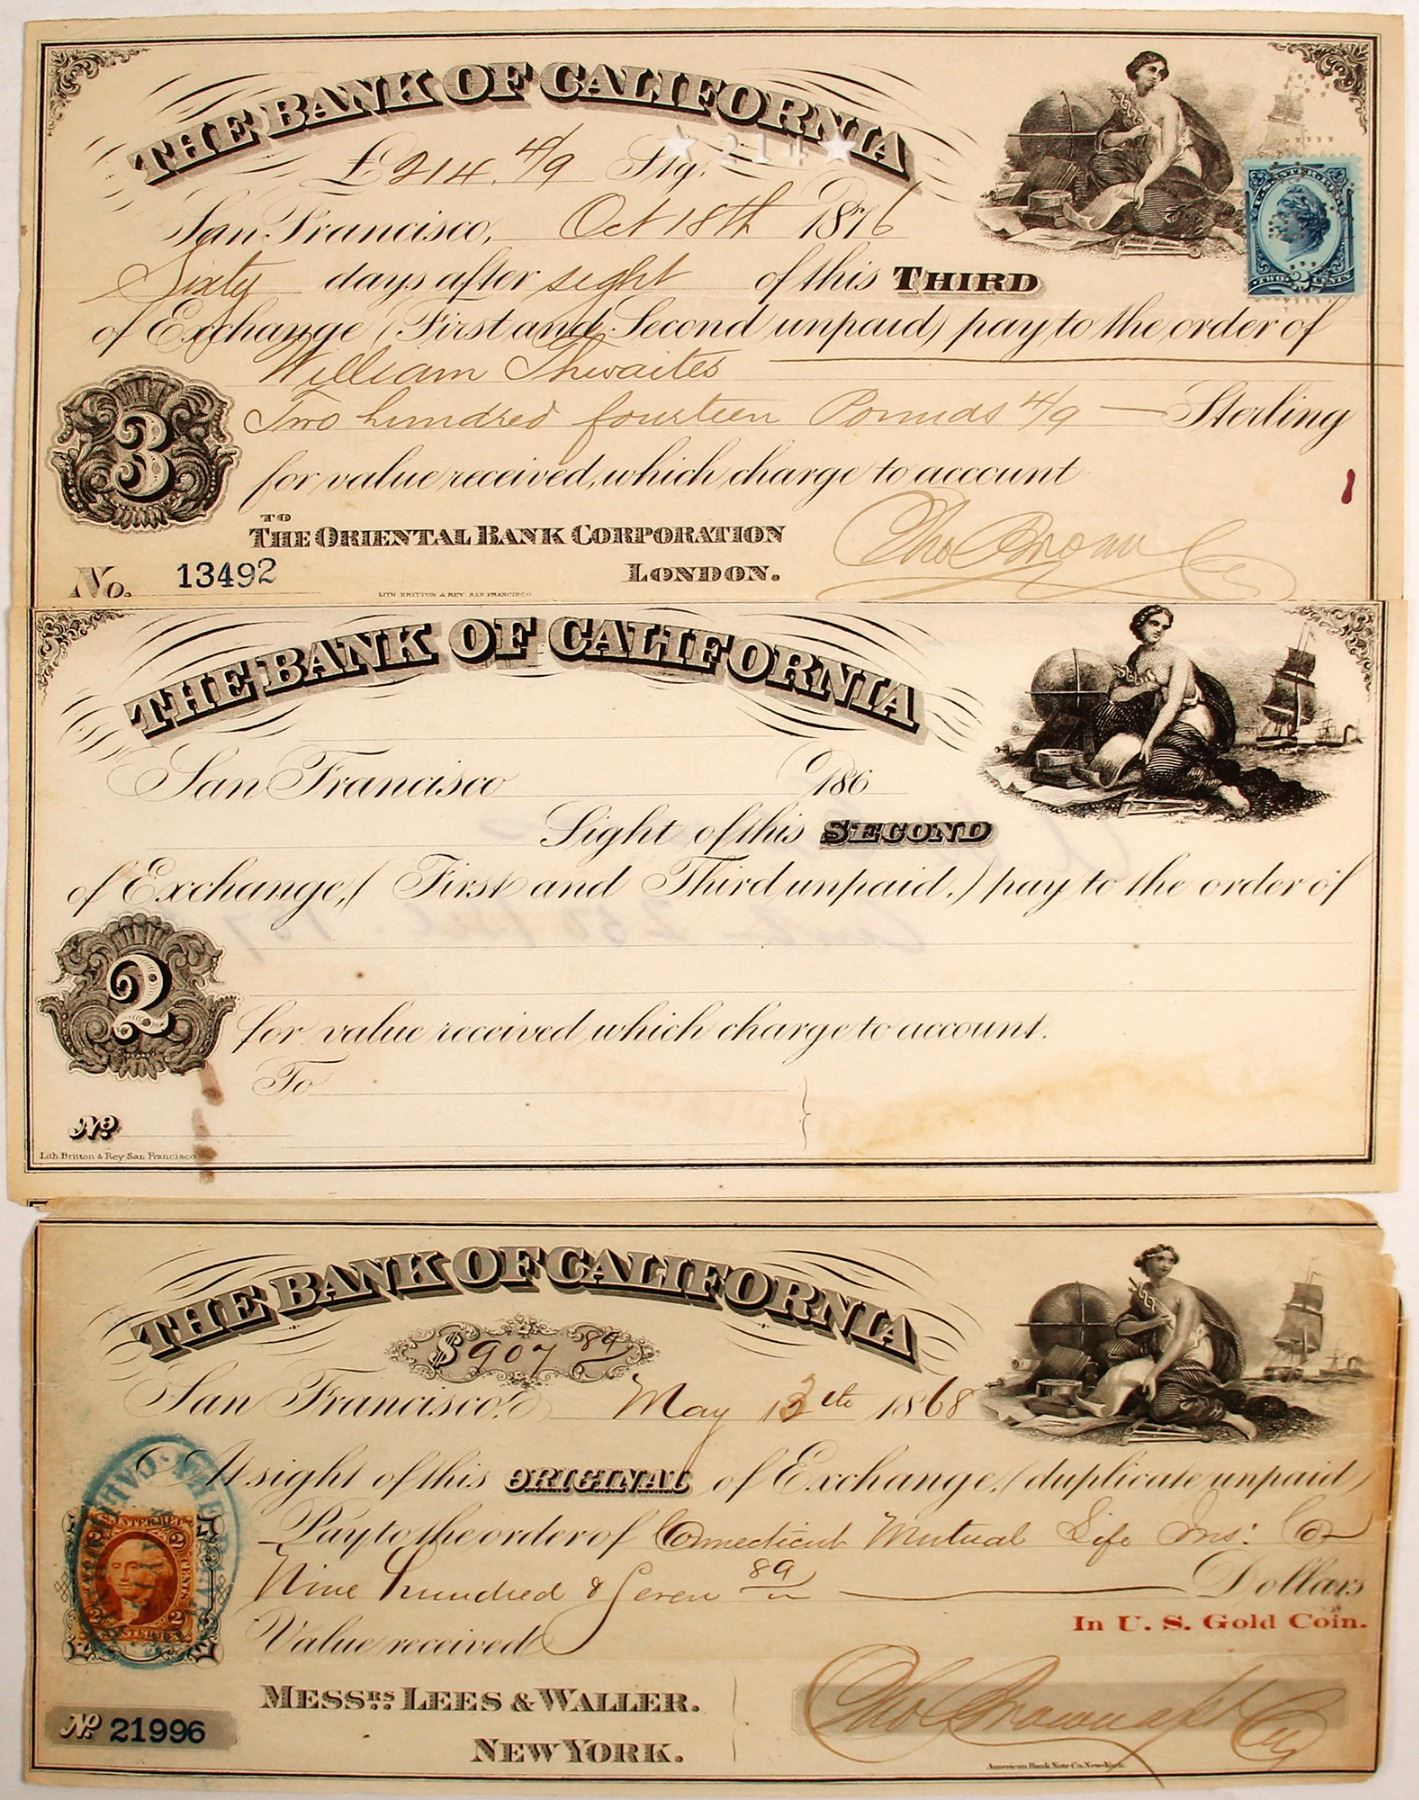 THE BANK OF CALIFORNIA
★ 214 ★
£214. 4/9 Stg.
San Francisco, Oct 18th 1876
Sixty days after sight of this THIRD
of Exchange (First and Second unpaid) pay to the order of
William Thwaites
Two hundred fourteen Pounds 4/9 — Sterling
for value received, which charge to account
TO
THE ORIENTAL BANK CORPORATION
LONDON.
Tho Brown
3
No. 13492
LITH. BRITTON & REY. SAN FRANCISCO
TWO 2 CENTS
THE BANK OF CALIFORNIA
San Francisco 186
Sight of this SECOND
of Exchange, (First and Third unpaid.) pay to the order of
2
for value received which charge to account.
To
No
Lith. Britton & Rey San Francisco.
THE BANK OF CALIFORNIA
$907 89
San Francisco, May 13th 1868
At sight of this ORIGINAL of Exchange, (duplicate unpaid)
Pay to the order of Connecticut Mutual Life Ins: Co
Nine hundred & Seven 89 — Dollars
In U. S. Gold Coin.
Value received
U.S. INTER. REV.
2 2
CENTS
2 2
MESSRS LEES & WALLER.
NEW YORK.
Tho Brown
No 21996
American Bank Note Co. New-York.